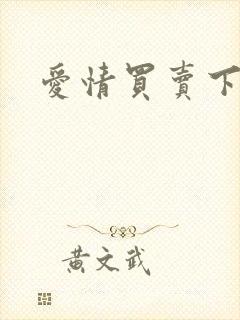 愛情買賣下
黃文武